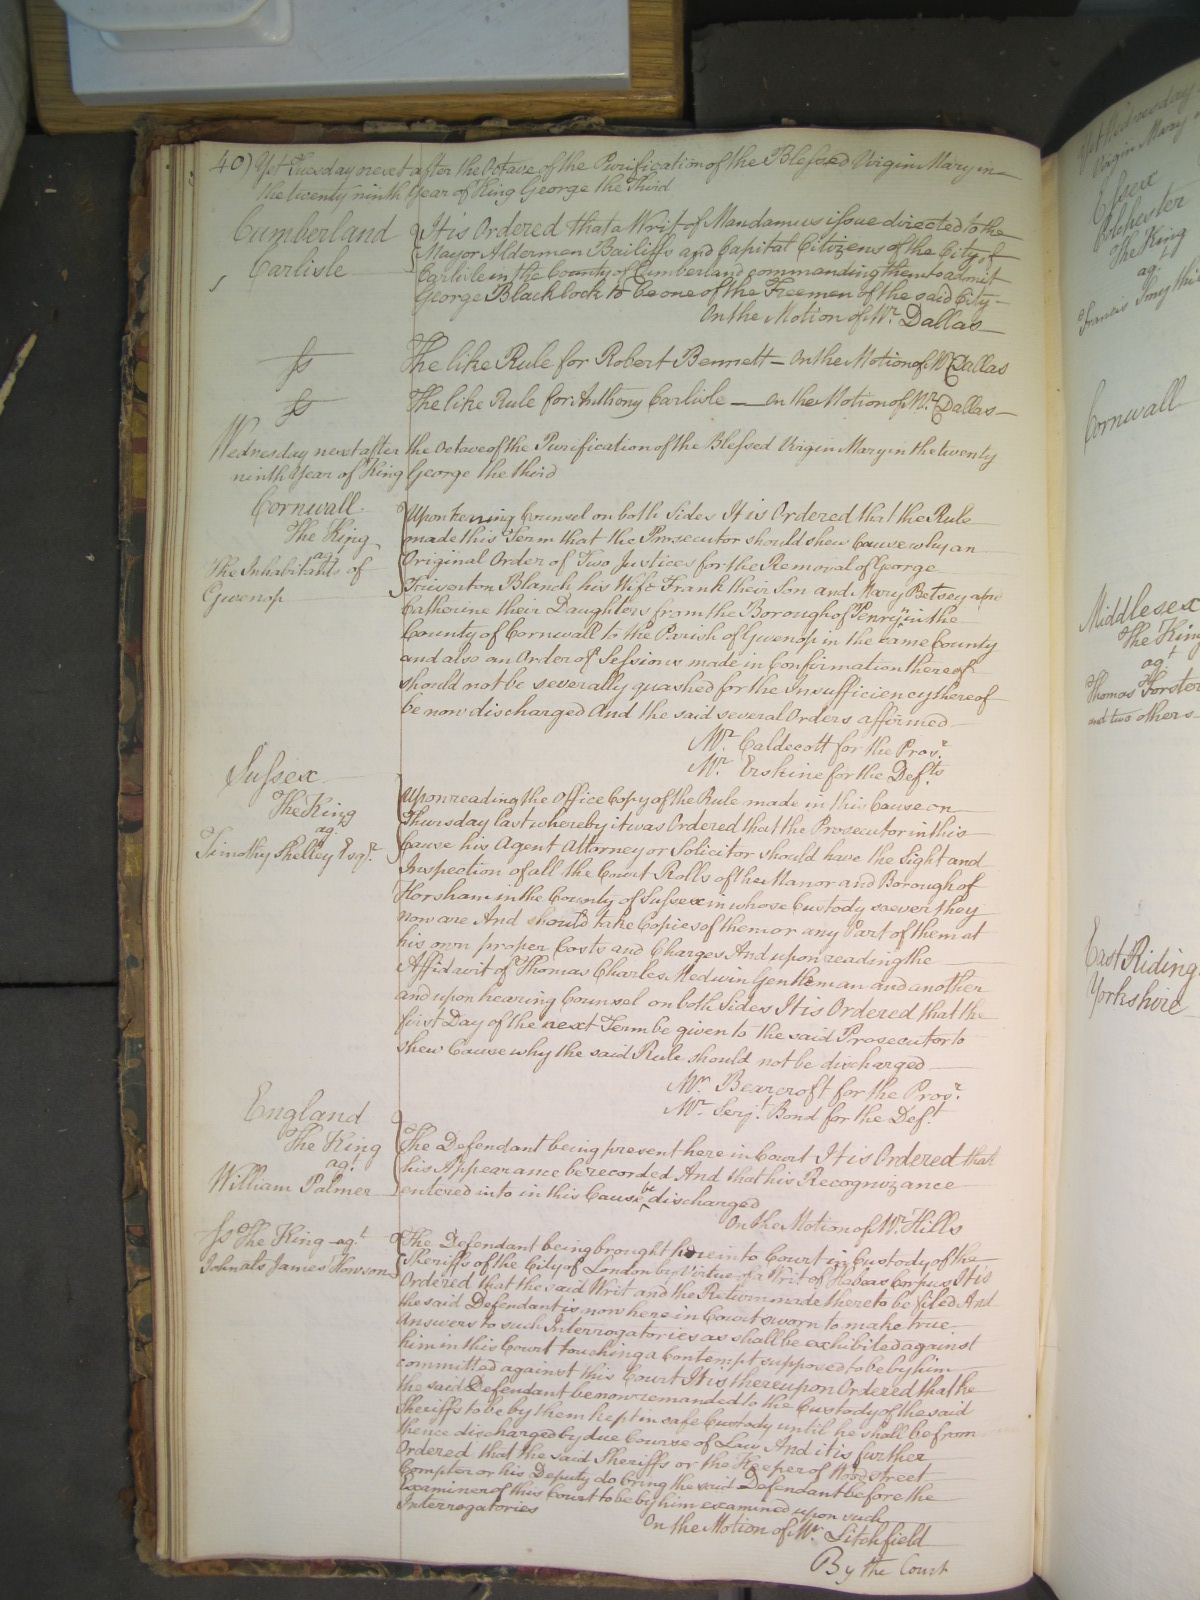 40) Yet Tuesday next after the Octave of the Purification of the Blessed Virgin Mary in
the twenty ninth Year of King George the Third
Cumberland
Carlisle
It is Ordered that a Writ of Mandamus issue directed to the
Mayor Aldermen Bailiffs and Capital Citizens of the City of
Carlisle in the County of Cumberland commanding them to admit
George Blacklock to be one of the Freemen of the said City
On the Motion of Mr. Dallas
ss
The like Rule for Robert Bennett – On the Motion of Mr. Dallas
ss
The like Rule for Anthony Carlisle — On the Motion of Mr. Dallas
Wednesday next after the Octave of the Purification of the Blessed Virgin Mary in the twenty
ninth Year of King George the third
Cornwall
The King
agt
The Inhabitants of
Gwenop
Upon hearing Counsel on both Sides It is Ordered that the Rule
made this Term that the Prosecutor should shew Cause why an
Original Order of Two Justices for the Removal of George
Blanch his Wife Frank their Son and Mary Betsey and
Catherine their Daughters from the Borough of Penryn in the
County of Cornwall to the Parish of Gwenop in the same County
and also an Order of Sessions made in Confirmation thereof
should not be severally quashed for the Insufficiency thereof
be now discharged And the said several Orders affirmed
Mr. Caldecott for the Prosr.
Mr. Erskine for the Defts
Sussex
The King
agt
Timothy Shelley Esqr.
Upon reading the Office Copy of the Rule made in this Cause on
Thursday last whereby it was Ordered that the Prosecutor in this
Cause his Agent Attorney or Solicitor should have the Sight and
Inspection of all the Court Rolls of the Manor and Borough of
Horsham in the County of Sussex in whose Custody soever they
now are And should take Copies of them or any Part of them at
his own proper Costs and Charges And upon reading the
Affidavit of Thomas Charles Medwin Gentleman and another
and upon hearing Counsel on both Sides It is Ordered that the
first Day of the next Term be given to the said Prosecutor to
shew Cause why the said Rule should not be discharged
Mr. Bearcroft for the Prosr.
Mr. Serjt. Bond for the Deft
England
The King
agt
William Palmer
The Defendant being present here in Court It is Ordered that
his Appearance be recorded And that his Recognizance
entered into in this Cause be discharged
On the Motion of Mr. Hills
ss The King agt
John als James Howson
The Defendant being brought here into Court in Custody of the
Sheriffs of the City of London by Virtue of a Writ of Habeas Corpus It is
Ordered that the said Writ and the Return made thereto be filed And
the said Defendant is now here in Court sworn to make true
Answers to such Interrogatories as shall be exhibited against
him in this Court touching a Contempt supposed to be by him
committed against this Court It is thereupon Ordered that he
the said Defendant be now remanded to the Custody of the said
Sheriffs to be by them kept in safe Custody until he shall be from
thence discharged by due Course of Law And it is further
Ordered that the said Sheriffs or the Keeper of Wood street
Compter or his Deputy do bring the said Defendant before the
Examiner of this Court to be by him examined upon such
Interrogatories
On the Motion of Mr. Litchfield
By the Court
Yet Wednesday
Virgin Mary
Essex
Colchester
The King
agt
Francis
Cornwall
Middlesex
The King
agt
Thomas Forster
and two others
East Riding
Yorkshire